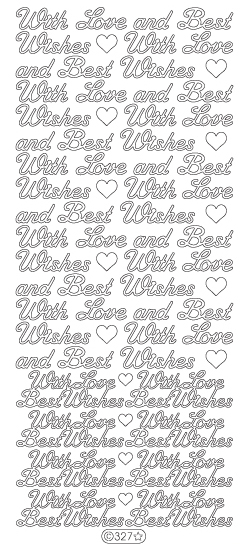 With Love and Best
Wishes ♡ With Love
and Best Wishes ♡
With Love and Best
Wishes ♡ With Love
and Best Wishes ♡
With Love and Best
Wishes ♡ With Love
and Best Wishes ♡
With Love and Best
Wishes ♡ With Love
and Best Wishes ♡
With Love and Best
Wishes ♡ With Love
and Best Wishes ♡
With Love ♡ With Love
Best Wishes Best Wishes
With Love ♡ With Love
Best Wishes Best Wishes
With Love ♡ With Love
Best Wishes Best Wishes
With Love ♡ With Love
Best Wishes Best Wishes
©327☆